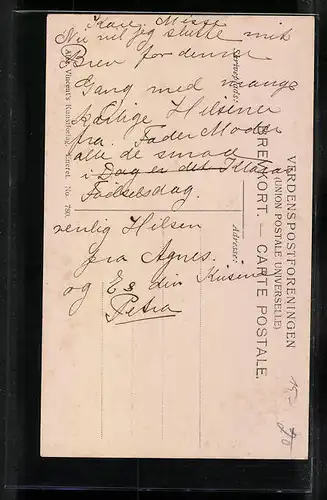 Kære Misse
Nu vil jeg slutte mit
Brev for denne
Gang med mange
kærlige Hilsener
fra Fader Moder
alle de smaa
i Dag er det
Fødselsdag.
venlig Hilsen
fra Agnes.
og Es din Kusine
Petra
VERDENSPOSTFORENINGEN
(UNION POSTALE UNIVERSELLE)
BREVKORT. — CARTE POSTALE.
Adresse:
Alex Vincent's Kunstforlag. Eneret. No. 780.